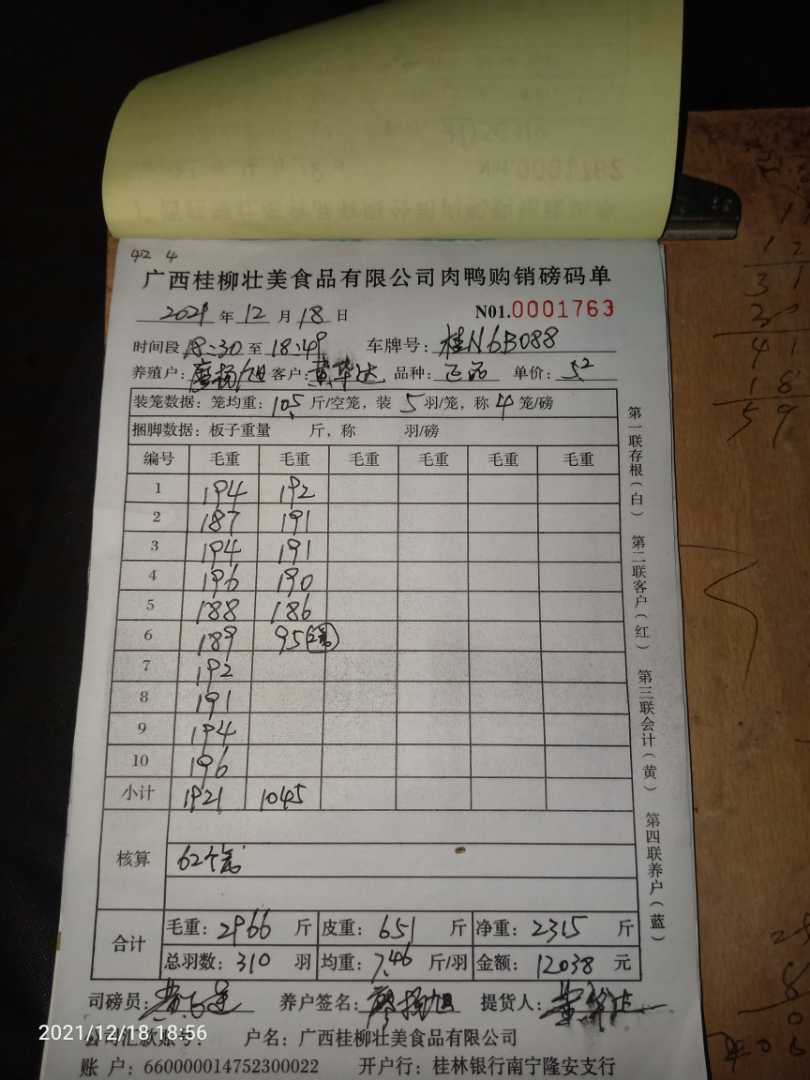 42 4
广西桂柳壮美食品有限公司肉鸭购销磅码单
2021 年 12 月 18 日 N01.0001763
时间段 18:30 至 18:49 车牌号: 桂N6B088
养殖户: 客户: 黄华达 品种: 正品 单价: 5.2
装笼数据: 笼均重: 10.5 斤/空笼, 装 5 羽/笼, 称 4 笼/磅
捆脚数据: 板子重量 斤, 称 羽/磅
编号 毛重 毛重 毛重 毛重 毛重 毛重
1 194 192
2 187 191
3 194 191
4 196 190
5 188 186
6 189 95
7 192
8 191
9 194
10 196
小计 1921 1045
核算 62个笼
合计 毛重: 2966 斤 皮重: 651 斤 净重: 2315 斤
总羽数: 310 羽 均重: 7.46 斤/羽 金额: 12038 元
司磅员: 养户签名: 提货人:
公司汇款账号: 户名: 广西桂柳壮美食品有限公司
账 户: 660000014752300022 开户行: 桂林银行南宁隆安支行
第一联存根(白) 第二联客户(红) 第三联会计(黄) 第四联养户(蓝)
2021/12/18 18:56